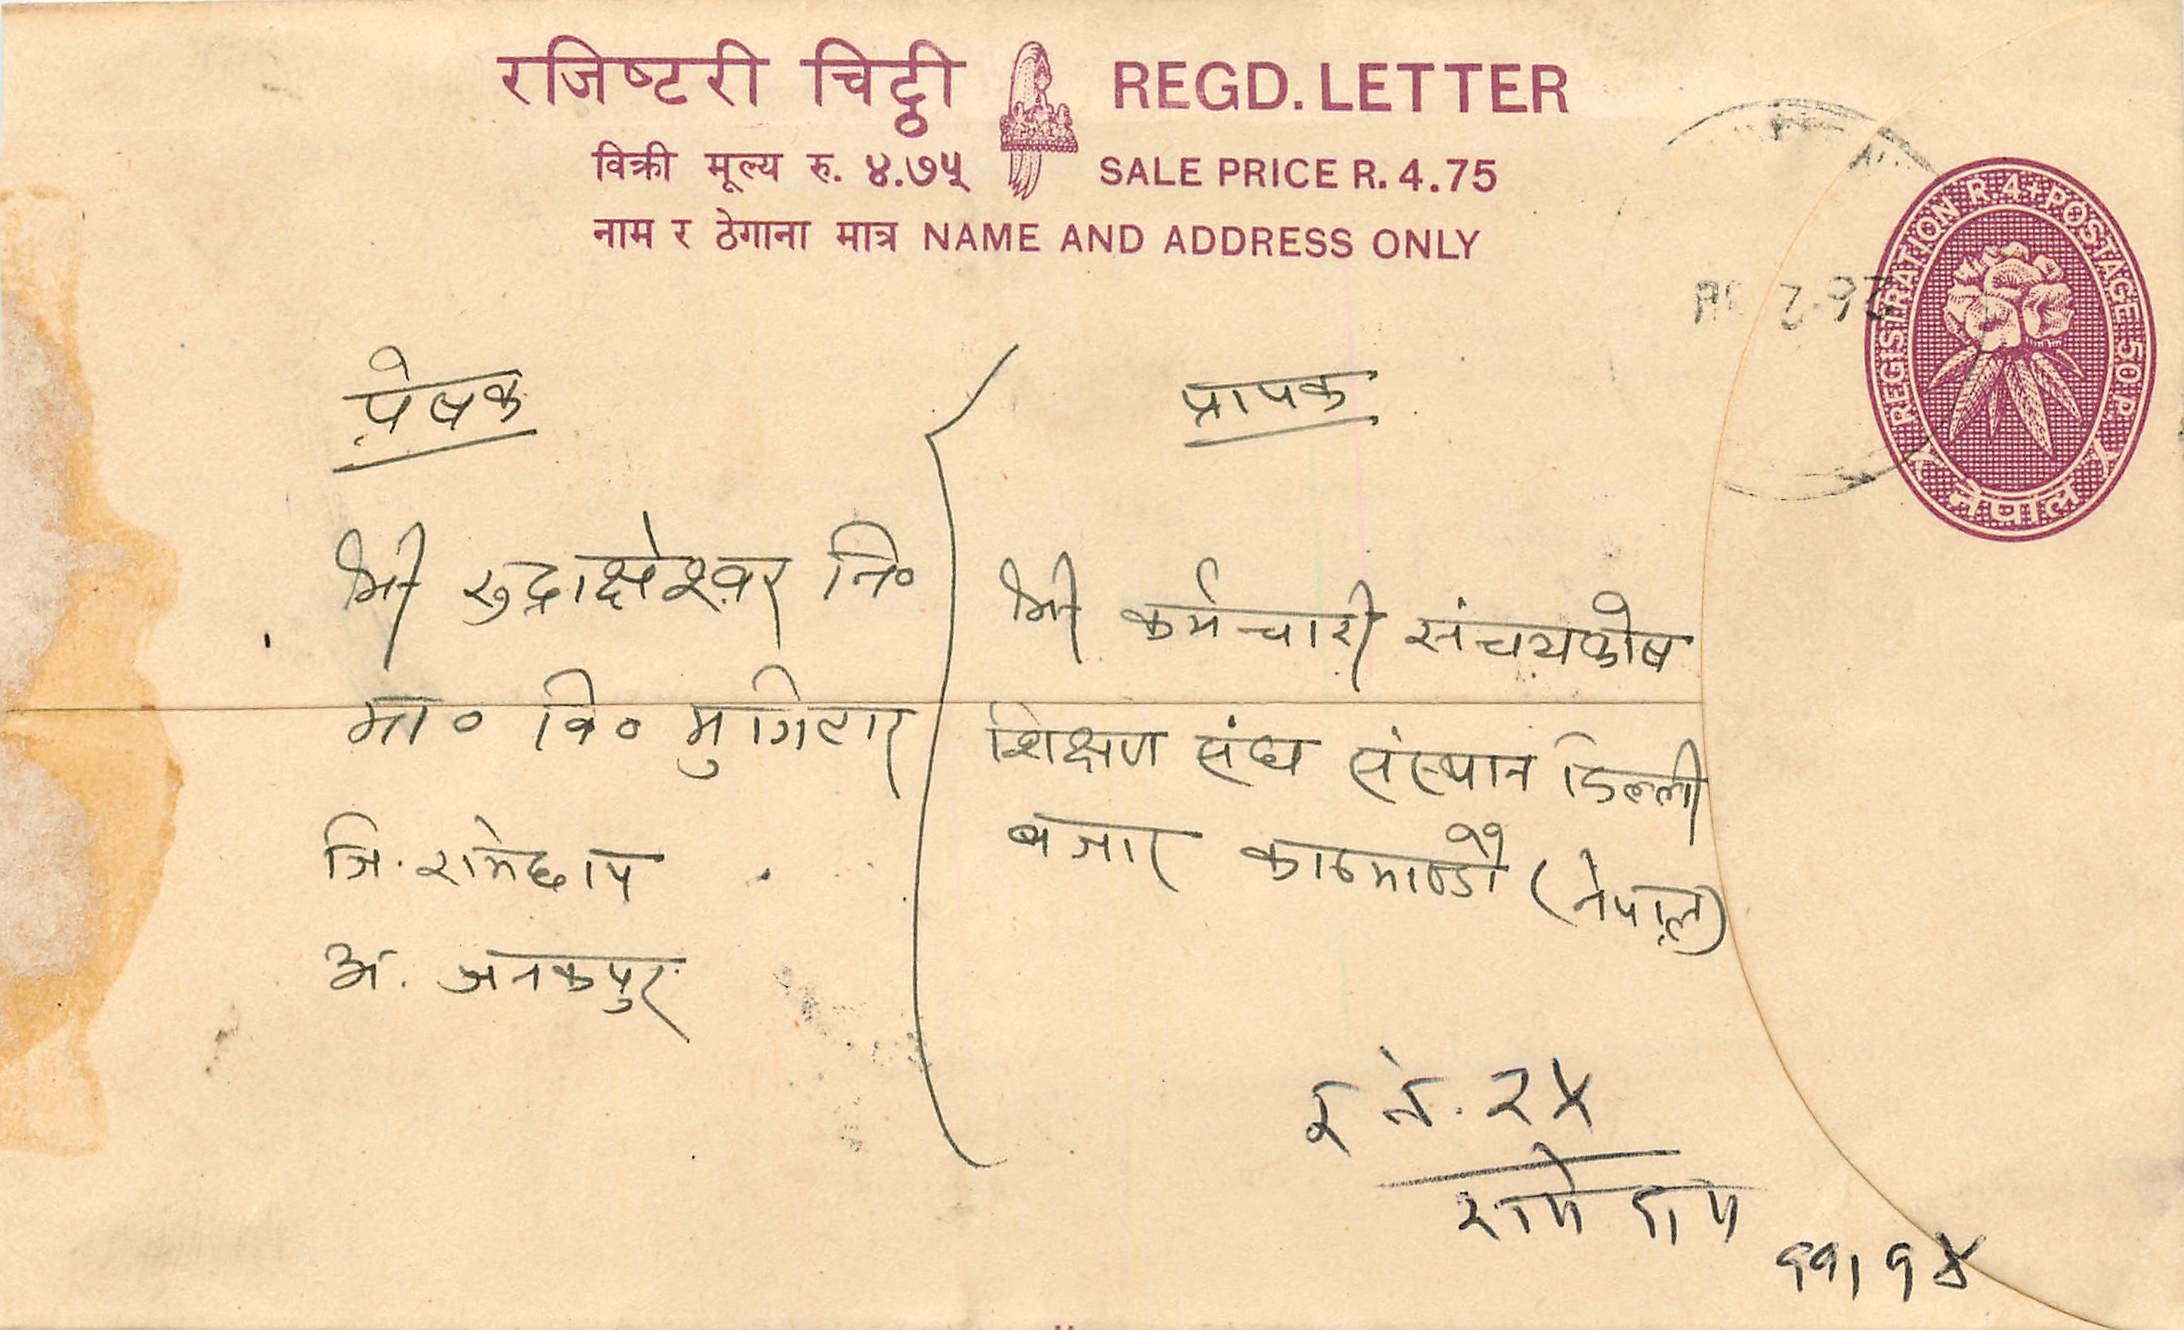 रजिष्टरी चिठ्ठी REGD. LETTER
विक्री मूल्य रु. ४.७५ SALE PRICE R. 4.75
नाम र ठेगाना मात्र NAME AND ADDRESS ONLY
REGISTRATION R.4+POSTAGE 50 P.
नेपाल
प्रेषक
श्री रुद्राक्षेश्वर नि०
मा० वि० मुगिटार
जि. रामेछाप
अं. जनकपुर
प्रापक
श्री कर्मचारी संचयकोष
शिक्षण संघ संस्थान डिल्ली
बजार काठमाण्डौ (नेपाल)
र नं. २५
रामेछाप
११।१४